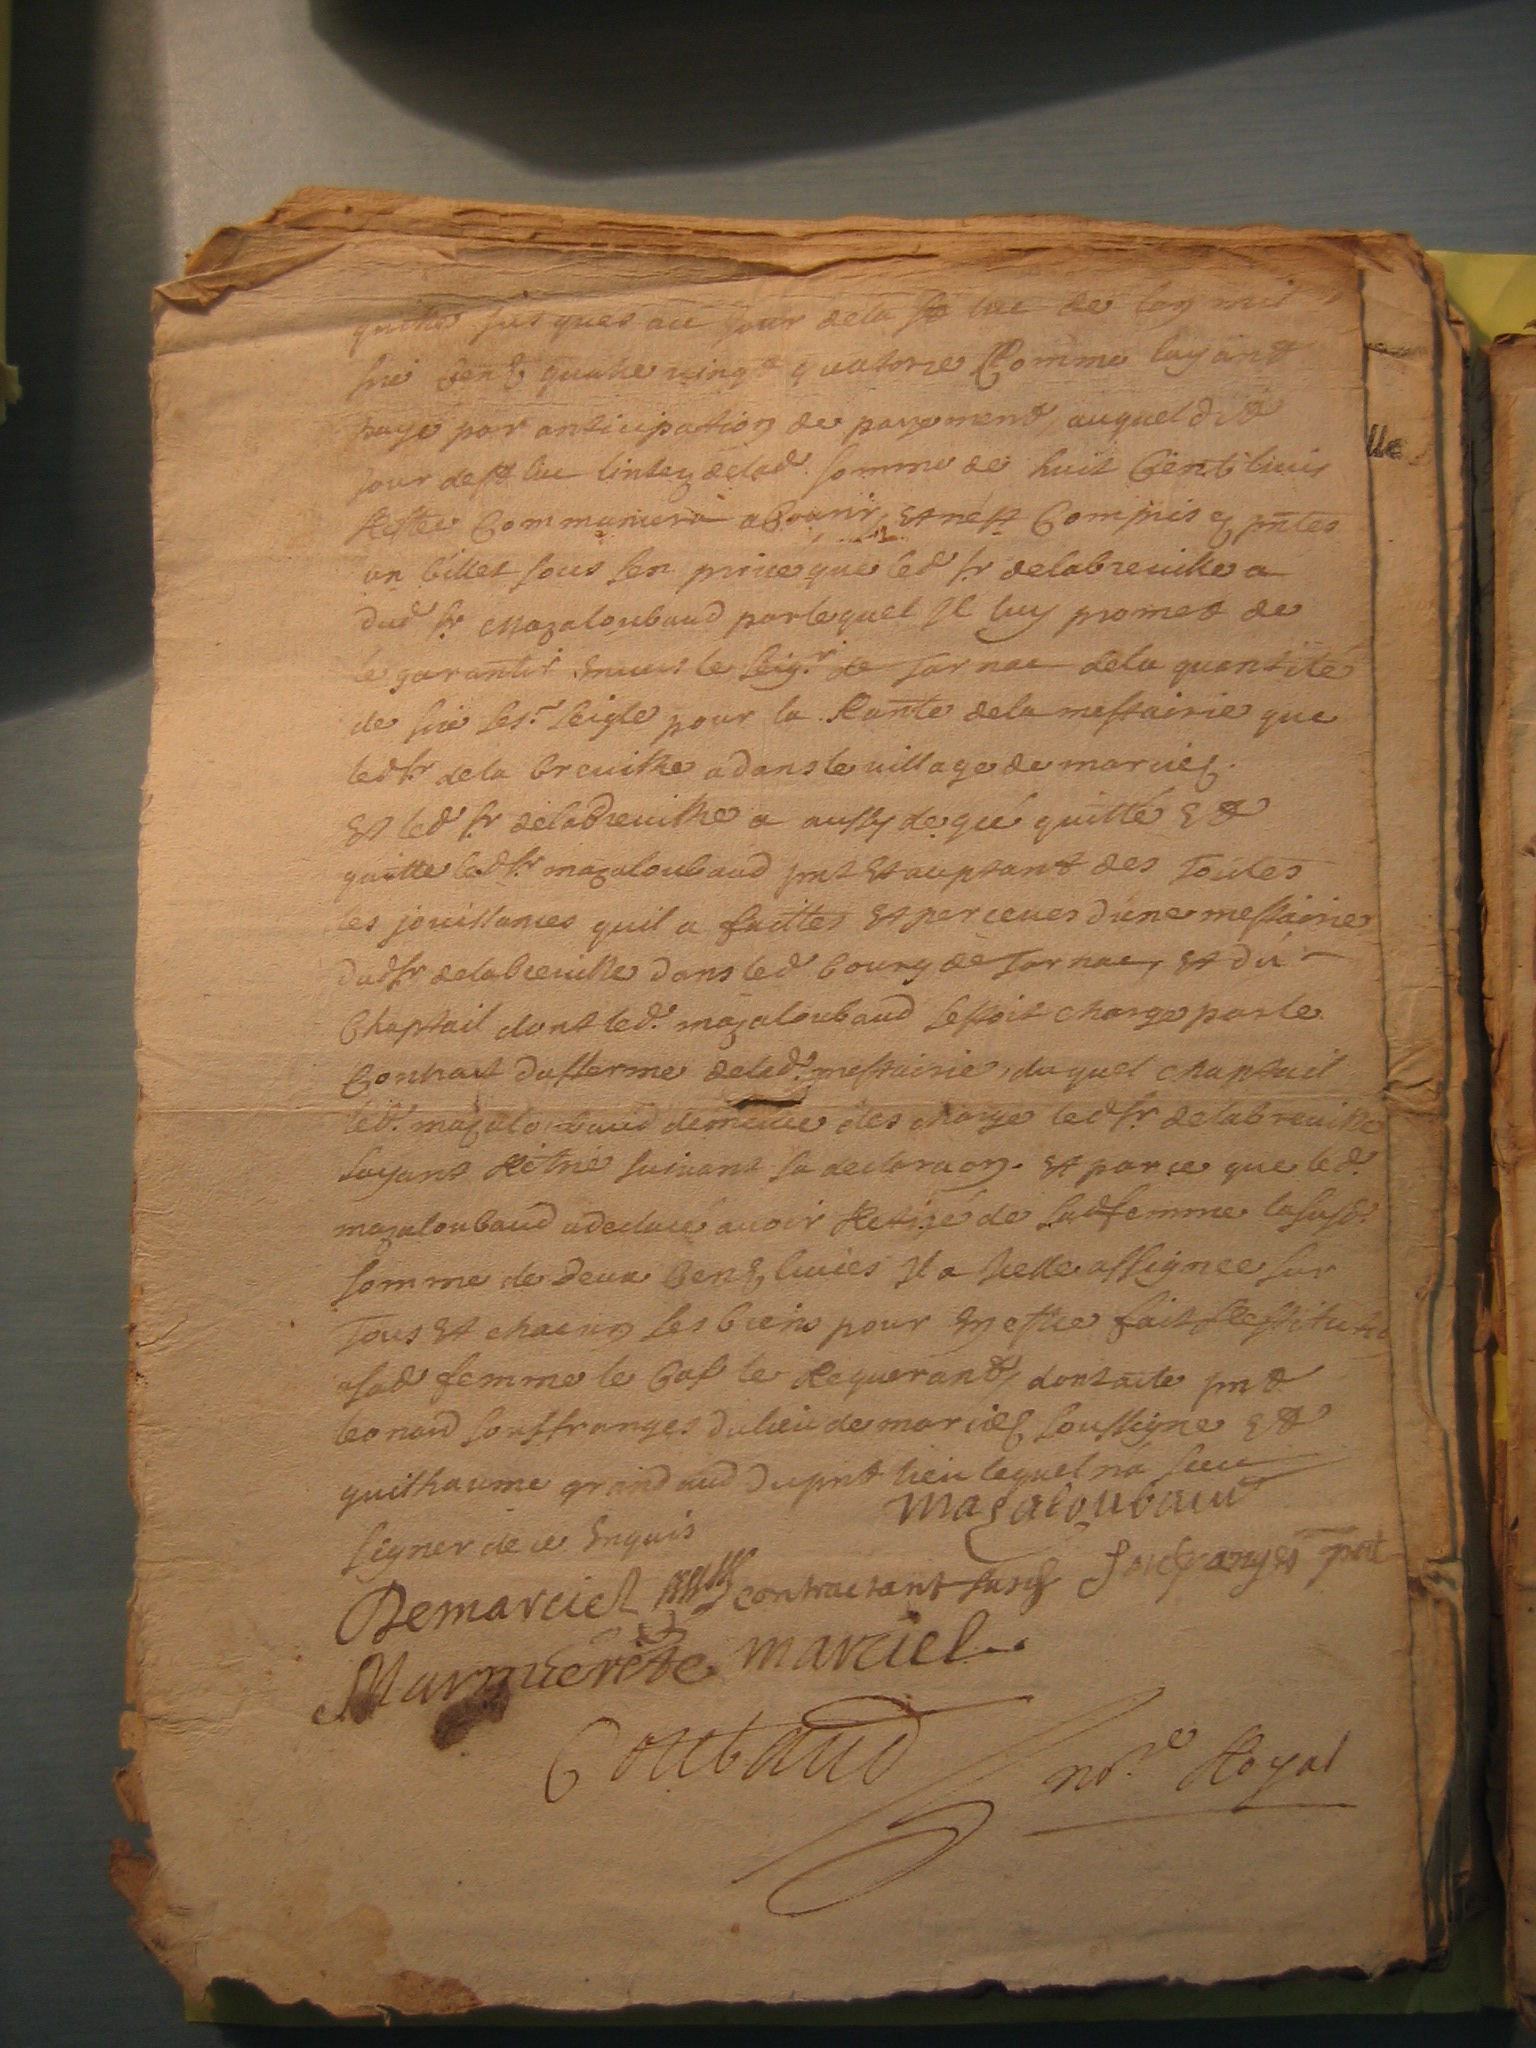 quitte jusques au jour de la st luc de lan mil
six cens quatre vingt quatorze Comme layant
paye par anticipation de payement, auquel dit
jour de st luc linterz de lad. somme de huit Centz livres
restee Commancera a Courir, et nest Compris ez pntes
un billet sous sen prive que led. sr delabreuille a
dud. sr Mazaloubaud par lequel Il luy promet de
le garantir envers le seigr. de Tarnac de la quantité
de six sesr. seigle pour la Rante de la mestairie que
led sr. de la breuille a dans le village de marciez.
et led. sr delabreuille a aussy de qué quitté et
quitte led sr. mazaloubaud pnt et auptant des Toutes
les jouissances quil a faittes et perceues dune mestairie
dud sr delabreuille dans led. bourg de Tarnac, et du
Chaptail dont led. mazaloubaud sestoit charge par le
Contract dafferme de lad. mestairie, duquel chaptail
led. mazaloubaud demeure descharge led sr. delabreuille
layant Retiré suivant sa declaraon. et parce que led.
mazaloubaud a declaré avoir Retiré de sad femme la susd.
somme de deux Centz livres Il a Icelle assignee sur
Tous et chacun ses biens pour en estre fait Restitution
a sad femme le Cas le Requerant, dont acte pnt
leonard souffranges du lieu de marciez soussigne et
guilhaume grandaud du pnt lieu lequel na sceu
signer de ce Enquis
Mazaloubaud
Demarciel contractant susd Souffranges pnt
Marguerite marciel
Coubaud nore. Royal
lle